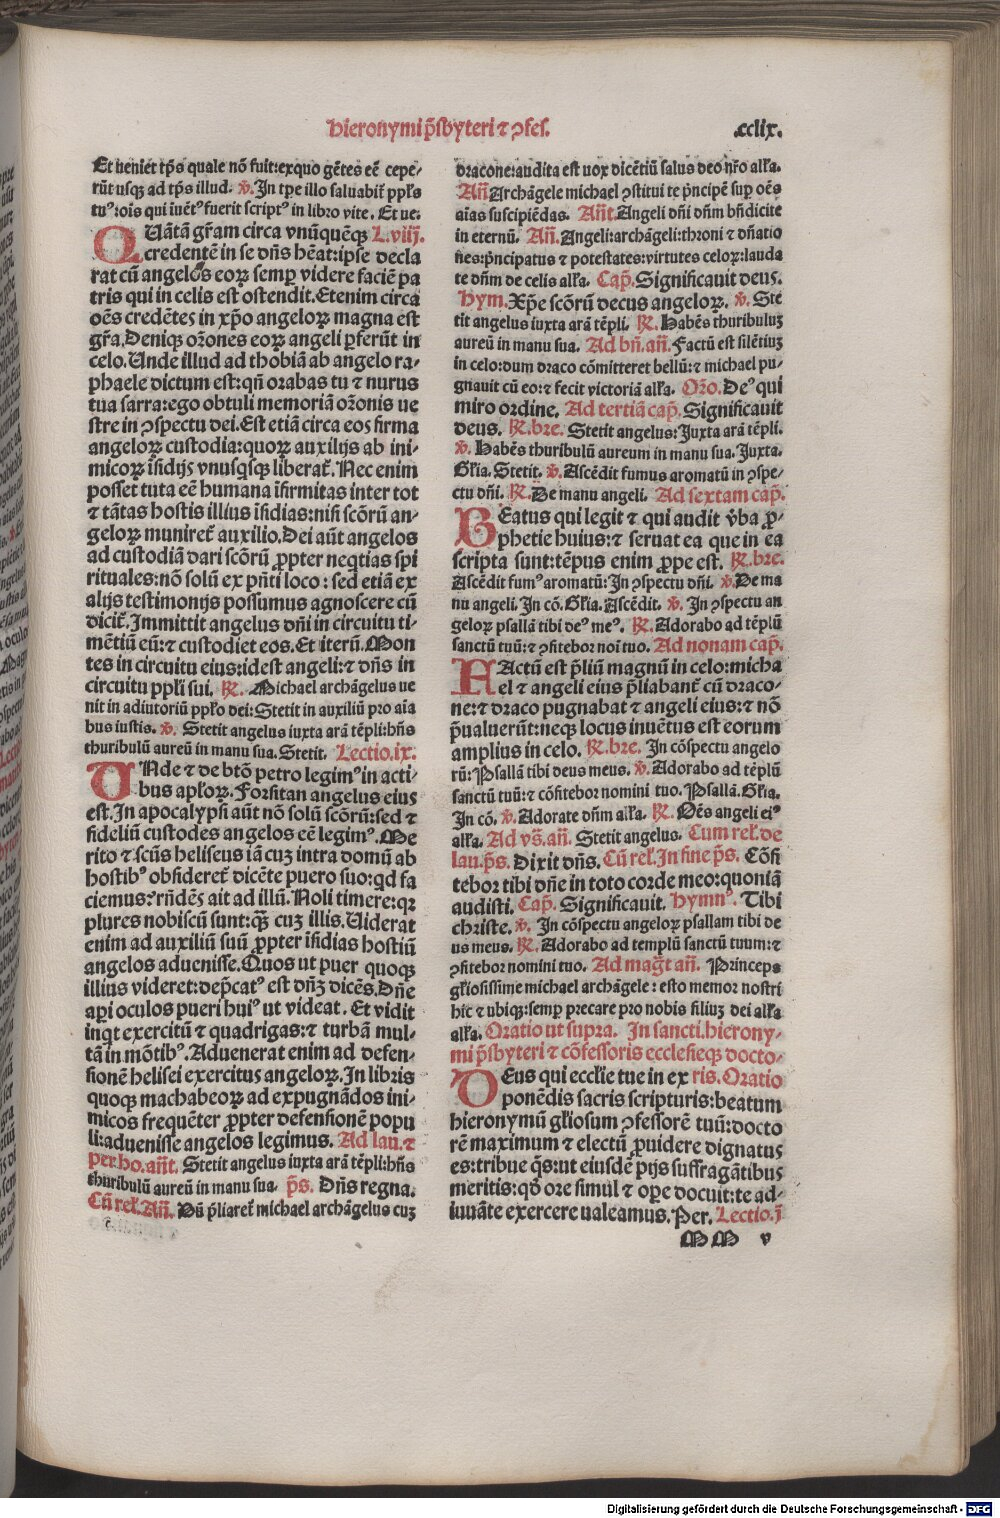 Hieronymi p̄sbyteri ⁊ ꝯfes.
.cclix.
Et ueniet tp̄s quale nō fuit:exquo gētes eē cepe-
rūt usq̨ ad tp̄s illud. ℣. In tp̄e illo saluabit̄ pp̄ls
tuꝰ:oīs qui īuētꝰ fuerit scriptꝰ in libro vite. Et ue.
QUātā gr̄am circa vnūquēq̨ L.viij.
credentē in se dn̄s hēat:ipse decla
rat cū angelos eoꝝ semꝑ videre faciē pa
tris qui in celis est ostendit.Etenim circa
oēs credētes in xp̄o angeloꝝ magna est
gr̄a.Deniq̨ or̄ones eoꝝ angeli ꝑferūt in
celo.Unde illud ad thobiā ab angelo ra-
phaele dictum est:qn̄ orabas tu ⁊ nurus
tua sarra:ego obtuli memoriā or̄onis ue
stre in ꝯspectu dei.Est etiā circa eos firma
angeloꝝ custodia:quoꝝ auxilijs ab ini-
micoꝝ īsidijs vnusq̨sq̨ liberat̄. Nec enim
posset tuta eē humana īfirmitas inter tot
⁊ tātas hostis illius īsidias:nisi scōrū an-
geloꝝ muniret̄ auxilio.Dei aūt angelos
ad custodiā dari scōrū ꝓpter neq̄tias spi
rituales:nō solū ex p̄nti loco : sed etiā ex
alijs testimonijs possumus agnoscere cū
dicit̄.Immittit angelus dn̄i in circuitu ti-
mētiū eū:⁊ custodiet eos. Et iterū.Mon
tes in circuitu eius:idest angeli:⁊ dn̄s in
circuitu pp̄li sui. ℟. Michael archāgelus ue
nit in adiutoriū pp̄lo dei:Stetit in auxiliū pro aīa
bus iustis. ℣. Stetit angelus iuxta arā tēpli:hn̄s
thuribulū aureū in manu sua.Stetit. Lectio.ix.
UNde ⁊ de btō petro legimꝰ in acti-
bus apl̄oꝝ. Forsitan angelus eius
est.In apocalypsi aūt nō solū scōrū:sed ⁊
fideliū custodes angelos eē legimꝰ.Me
rito ⁊ scūs heliseus iā cuꝫ intra domū ab
hostibꝰ obsideret̄ dicēte puero suo:qd fa
ciemus?rn̄dēs ait ad illū. Noli timere:qꝛ
plures nobiscū sunt:q̄ꝫ cuꝫ illis. Uiderat
enim ad auxiliū suū ꝓpter īsidias hostiū
angelos aduenisse.Quos ut puer quoq̨
illius videret:dep̄catꝰ est dn̄ꝫ dicēs.Dn̄e
aꝑi oculos pueri huiꝰ ut videat. Et vidit
inq̄t exercitū ⁊ quadrigas:⁊ turbā mul-
tā in mōtibꝰ.Aduenerat enim ad defen-
sionē helisei exercitus angeloꝝ.In libris
quoq̨ machabeoꝝ ad expugnādos ini-
micos frequēter ꝓpter defensionē popu
li:aduenisse angelos legimus. Ad lau.⁊
per ho.an̄t. Stetit angelus iuxta arā tēpli:hn̄s
thuribulū aureū in manu sua. p̄s. Dn̄s regna.
Cū rel̄.An̄. Dū p̄liaret̄ michael archāgelus cuꝫ
dracone:audita est uox dicētiū salus deo nr̄o alł̄a.
An̄ Archāgele michael ꝯstitui te p̄ncipē suꝑ oēs
aīas suscipiēdas. An̄t.Angeli dn̄i dn̄m bn̄dicite
in eternū. An̄.Angeli:archāgeli:throni ⁊ dn̄atio
nes:p̄ncipatus ⁊ potestates:virtutes celoꝝ:lauda
te dn̄m de celis alł̄a. Cap̄.Significauit deus.
Hym.Xp̄e scōrū decus angeloꝝ. ℣. Ste
tit angelus iuxta arā tēpli. ℟. Habēs thuribuluꝫ
aureū in manu sua. Ad bn̄.an̄. Factū est silētiuꝫ
in celo:dum draco cōmitteret bellū:⁊ michael pu-
gnauit cū eo:⁊ fecit victoriā alł̄a. Or̄o.Deꝰ qui
miro ordine. Ad tertiā cap̄. Significauit
deus. ℟.bre. Stetit angelus:Juxta arā tēpli.
℣. Habēs thuribulū aureum in manu sua. Juxta.
Gł̄ia.Stetit. ℣.Ascēdit fumus aromatū in ꝯspe-
ctu dn̄i. ℟.De manu angeli. Ad sextam cap̄.
BEatus qui legit ⁊ qui audit v̄ba ꝓ-
phetie huius:⁊ seruat ea que in ea
scripta sunt:tēpus enim ꝓpe est. ℟.bre.
Ascēdit fumꝰ aromatū:In ꝯspectu dn̄i. ℣.De ma
nu angeli. In cō. Gł̄ia.Ascēdit. ℣. In ꝯspectu an
geloꝝ psallā tibi deꝰ meꝰ. ℟. Adorabo ad tēplū
sanctū tuū:⁊ ꝯfitebor noī tuo. Ad nonam cap̄.
FActū est p̄liū magnū in celo:micha
el ⁊ angeli eius p̄liabant̄ cū draco-
ne:⁊ draco pugnabat ⁊ angeli eius:⁊ nō
p̄ualuerūt:neq̨ locus inuētus est eorum
amplius in celo. ℟.bre. In cōspectu angelo
rū:Psallā tibi deus meus. ℣. Adorabo ad tēplū
sanctū tuū:⁊ cōfitebor nomini tuo. Psallā.Gł̄ia.
In cō. ℣. Adorate dn̄m alł̄a. ℟. Oēs angeli eiꝰ
alł̄a. Ad vs̄.an̄. Stetit angelus. Cum rel̄.de
lau.p̄s. Dixit dn̄s. Cū rel̄.In fine p̄s. Cōfi
tebor tibi dn̄e in toto corde meo:quoniā
audisti. Cap̄. Significauit. Hymnꝰ. Tibi
christe. ℣. In cōspectu angeloꝝ psallam tibi de
us meus. ℟. Adorabo ad templū sanctū tuum:⁊
ꝯfitebor nomini tuo. Ad mag̅t an̄. Princeps
gl̄iosissime michael archāgele : esto memor nostri
hic ⁊ ubiq̨:semꝑ precare pro nobis filiuꝫ dei alł̄a
alł̄a. Oratio ut supra. In sancti.hierony-
mi p̄sbyteri ⁊ cōfessoris ecclesieq̨ docto-
DEus qui eccl̄ie tue in ex ris. Oratio
ponēdis sacris scripturis:beatum
hieronymū gl̄iosum ꝯfessorē tuū:docto
rē maximum ⁊ electū ꝓuidere dignatus
es:tribue q̄s:ut eiusdē p̄ijs suffragātibus
meritis:qd̄ ore simul ⁊ oꝑe docuit:te ad-
iuuāte exercere ualeamus. Per. Lectio.j
MM v
Digitalisierung gefördert durch die Deutsche Forschungsgemeinschaft - DFG